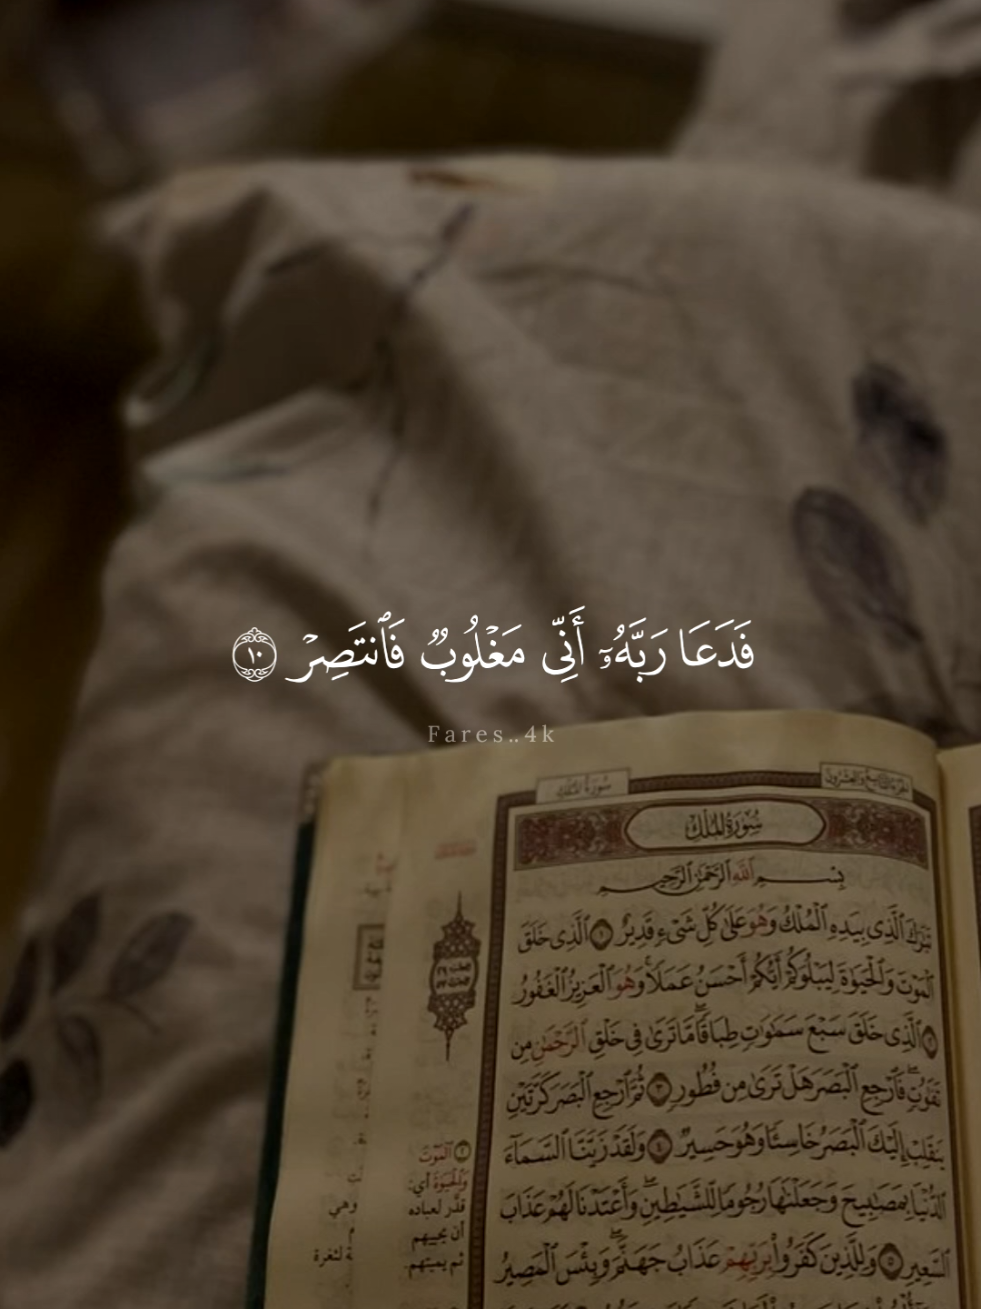 فَدَعَا رَبَّهُۥٓ أَنِّى مَغۡلُوبٌ فَٱنتَصِرۡ ١٠
Fares..4k
سُورَةُ المُلۡكِ
سُورَةُ المُلۡكِ
بِسۡمِ ٱللَّهِ ٱلرَّحۡمَٰنِ ٱلرَّحِيمِ
تَبَٰرَكَ ٱلَّذِى بِيَدِهِ ٱلۡمُلۡكُ وَهُوَ عَلَىٰ كُلِّ شَىۡءٍ قَدِيرٌ ١ ٱلَّذِى خَلَقَ
ٱلۡمَوۡتَ وَٱلۡحَيَوٰةَ لِيَبۡلُوَكُمۡ أَيُّكُمۡ أَحۡسَنُ عَمَلًاۚ وَهُوَ ٱلۡعَزِيزُ ٱلۡغَفُورُ
٢ ٱلَّذِى خَلَقَ سَبۡعَ سَمَٰوَٰتٍ طِبَاقًاۖ مَّا تَرَىٰ فِى خَلۡقِ ٱلرَّحۡمَٰنِ مِن
تَفَٰوُتٍۖ فَٱرۡجِعِ ٱلۡبَصَرَ هَلۡ تَرَىٰ مِن فُطُورٍ ٣ ثُمَّ ٱرۡجِعِ ٱلۡبَصَرَ كَرَّتَيۡنِ
يَنقَلِبۡ إِلَيۡكَ ٱلۡبَصَرُ خَاسِئًا وَهُوَ حَسِيرٌ ٤ وَلَقَدۡ زَيَّنَّا ٱلسَّمَآءَ
ٱلدُّنۡيَا بِمَصَٰبِيحَ وَجَعَلۡنَٰهَا رُجُومًا لِّلشَّيَٰطِينِۖ وَأَعۡتَدۡنَا لَهُمۡ عَذَابَ
ٱلسَّعِيرِ ٥ وَلِلَّذِينَ كَفَرُواْ بِرَبِّهِمۡ عَذَابُ جَهَنَّمَۖ وَبِئۡسَ ٱلۡمَصِيرُ
٢ ٱلۡمَوۡتَ
وَٱلۡحَيَوٰةَ أي:
قدَّر لعباده
أن يحييهم
ثم يميتهم
وهي